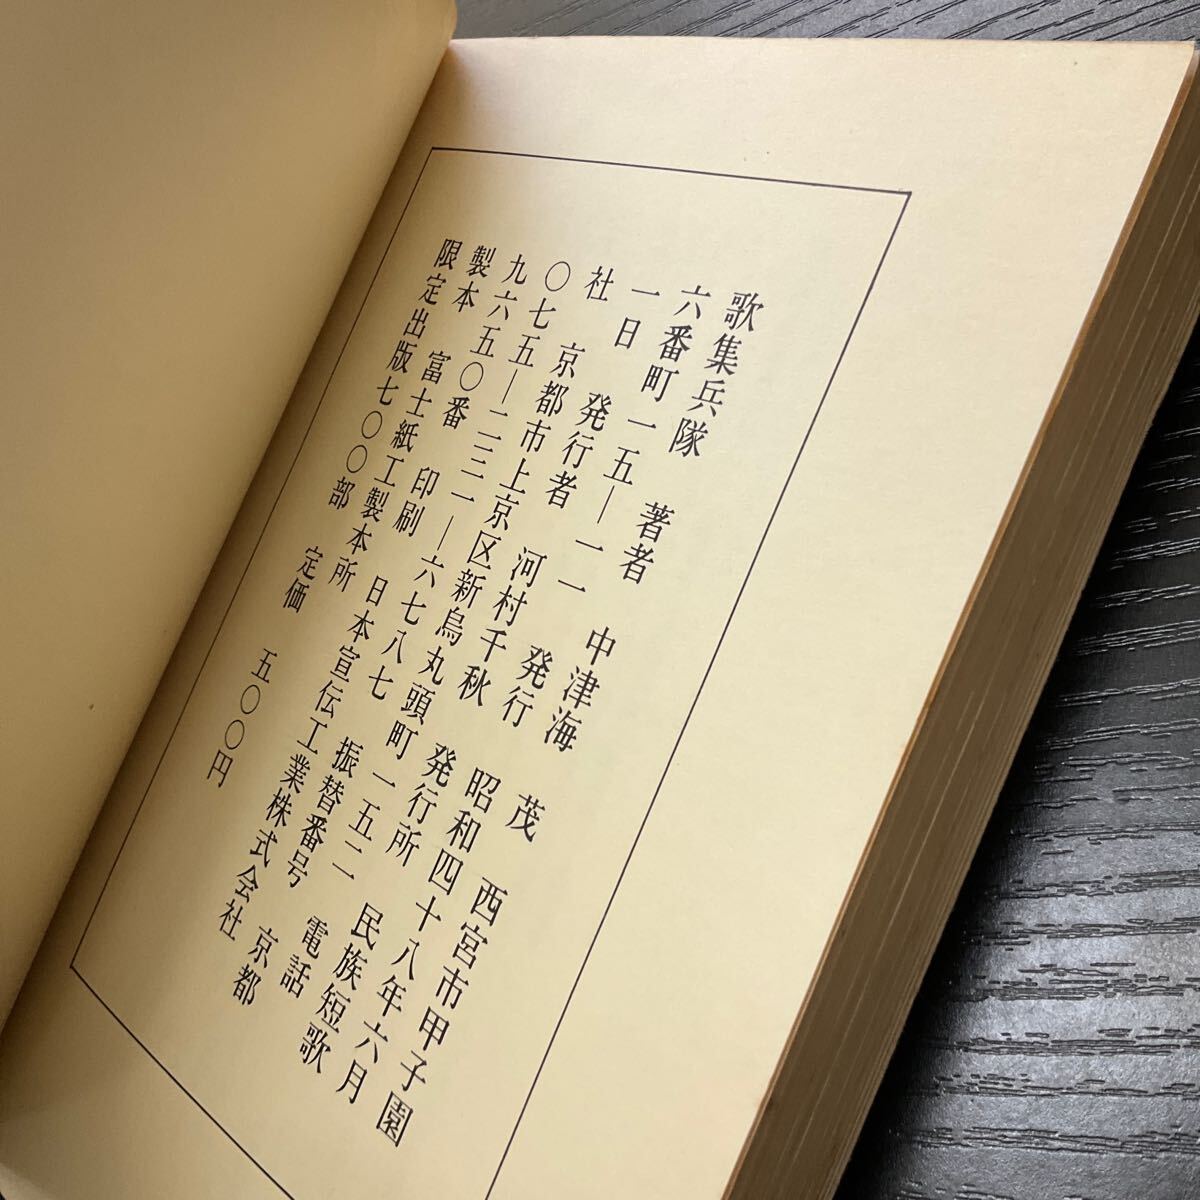 歌集兵隊　著者　中津海　茂　西宮市甲子園
六番町一五―一一　発行　昭和四十八年六月
一日　発行者　河村千秋　発行所　民族短歌
社　京都市上京区新烏丸頭町一五二　電話
〇七五―二三一―六七八七　振替番号　京都
九六五〇番　印刷　日本宣伝工業株式会社
製本　富士紙工製本所
限定出版七〇〇部　定価　五〇〇円